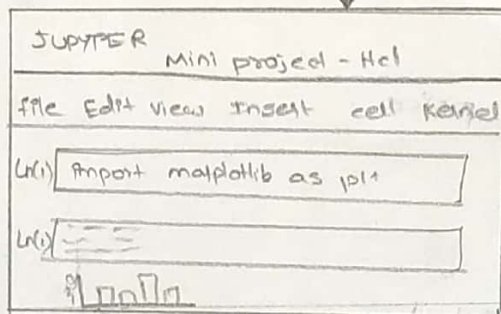 JUPYTER
Mini project - HCI
File Edit View Insert cell Kernel
Ln(1) Import matplotlib as plt
Ln(1)